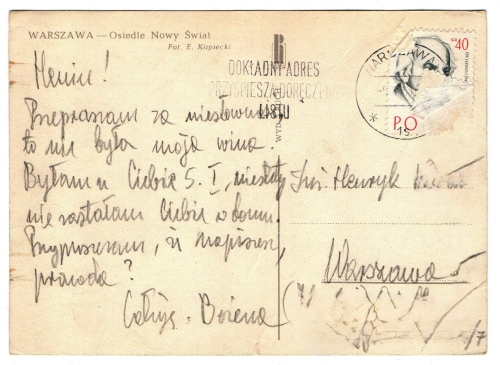 WARSZAWA — Osiedle Nowy Świat
Fot. E. Kupiecki
Heniu!
Przepraszam za niesłowność,
to nie była moja wina.
Byłam u Ciebie 5. I, niestety
nie zastałam Ciebie w domu.
Przypuszczam, iż napiszesz,
prawda?
Całuję. Bożena
DOKŁADNY ADRES
PRZYSPIESZA DORĘCZENIE
LISTU
WARSZAWA
40
PO
Inż. Henryk
Warszawa